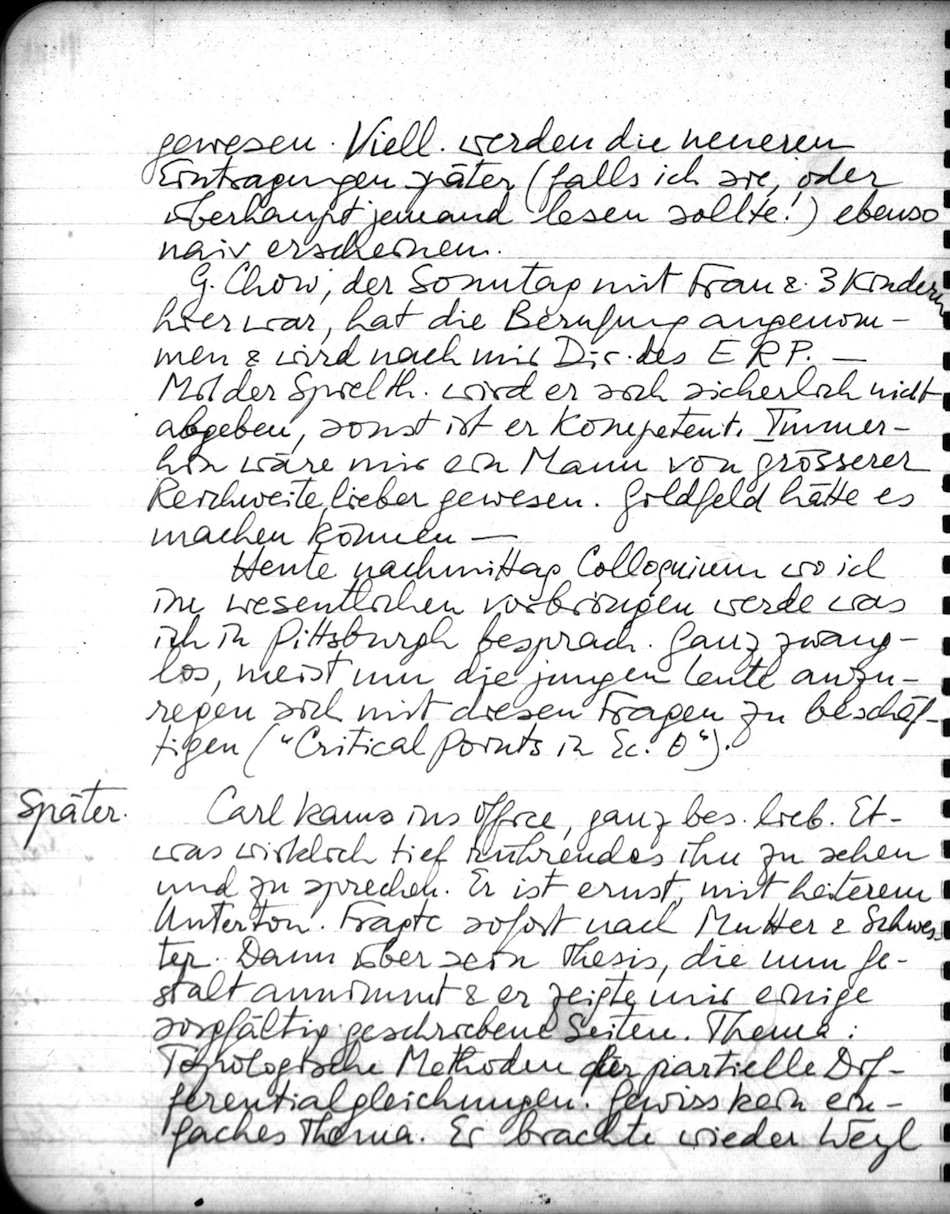 gewesen. Viell. werden die neueren
Eintragungen später (falls ich sie, oder
überhaupt jemand lesen sollte!) ebenso
naiv erscheinen.
G. Chow, der Sonntag mit Frau & 3 Kindern
hier war, hat die Berufung angenom-
men & wird nach mir Dir. des E R P. —
Mit der Spielth. wird er sich sicherlich nicht
abgeben, sonst ist er kompetent. Immer-
hin wäre mir ein Mann von grösserer
Reichweite lieber gewesen. Goldfeld hätte es
machen können —
Heute nachmittag Colloquium wo ich
im wesentlichen vorbringen werde was
ich in Pittsburgh besprach. Ganz zwang-
los, meist um die jungen Leute anzu-
regen sich mit diesen Fragen zu beschäf-
tigen ("Critical points in Ec. θ").
Später. Carl kam ins Office, ganz bes. lieb. Et-
was wirklich tief rührendes ihn zu sehen
und zu sprechen. Er ist ernst, mit heiterem
Unterton. Fragte sofort nach Mutter & Schwes-
ter. Dann über sein Thesis, die nun Ge-
stalt annimmt & er zeigte mir einige
sorgfältig geschriebene Seiten. Thema:
Topologische Methoden für partielle Dif-
ferentialgleichungen. Gewiss kein ein-
faches Thema. Er brachte wieder Weyl